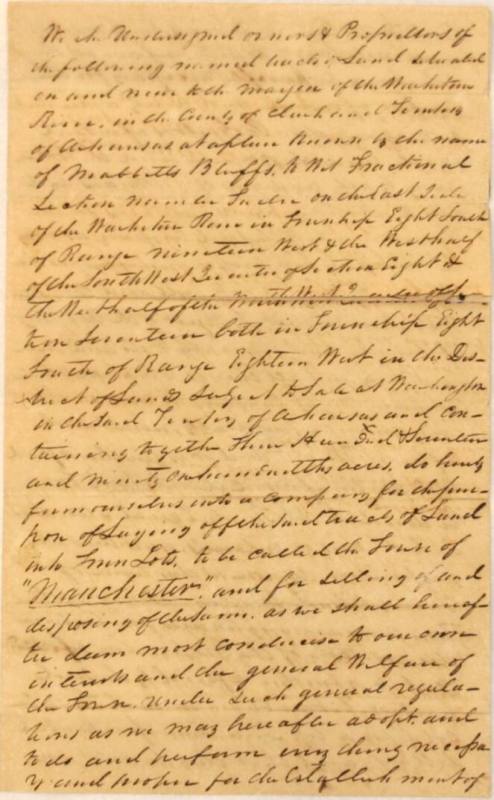 We the Undersigned owners & Proprietors of
the following named tracts of Land situated
on and near to the margin of the Wachitaw
River, in the County of Clark and Territory
of Arkansas at a place known by the name
of Mabbetts Bluffs, to Wit Fractional
Section number Twelve on the East Side
of the Wachitaw River in Township Eight South
of Range nineteen West & the West half
of the South West Quarter of Section Eight &
the West half of the North West Quarter of Sec-
tion Seventeen both in Township Eight
South of Range Eighteen West in the Dis-
trict of Lands subject to Sale at Washington
in the said Territory of Arkansas and con-
taining together Three Hundred & Seventeen
and Ninety One hundredths acres, do hereby
form ourselves into a company for the pur-
pose of Laying off the said tracts of Land
into Town Lots, to be called the Town of
"Manchester," and for selling of and
disposing of the same, as we shall hereaf-
ter deem most conducive to our own
interests and the general Welfare of
the Town. Under such general regula-
tions as we may hereafter adopt, and
to do and perform every thing necessa-
ry and proper for the Establishment of